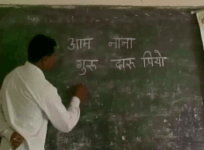 आम नाना
गुरू दारू पियो